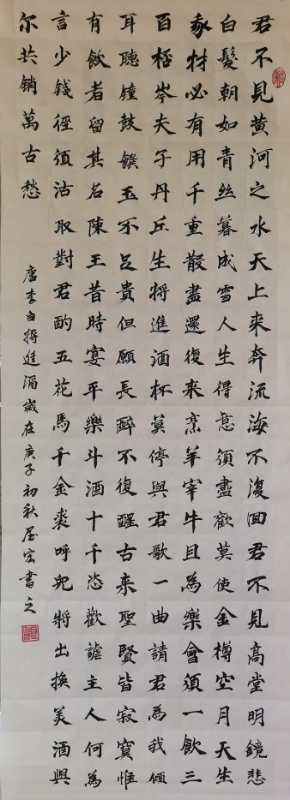 君不見黄河之水天上來奔流海不復回君不見高堂明鏡悲
白髮朝如青絲暮成雪人生得意須盡歡莫使金樽空月天生
我材必有用千重散盡還復来烹羊宰牛且為樂會須一飲三
百杯岑夫子丹丘生將進酒杯莫停與君歌一曲請君為我傾
耳聽鐘鼓饌玉不足貴但願長醉不復醒古来聖賢皆寂寞惟
有飲者留其名陳王昔時宴平樂斗酒十千恣歡謔主人何為
言少錢徑須沽取對君酌五花馬千金裘呼兒將出換美酒與
尔共銷萬古愁
唐李白將進酒歲在庚子初秋書之